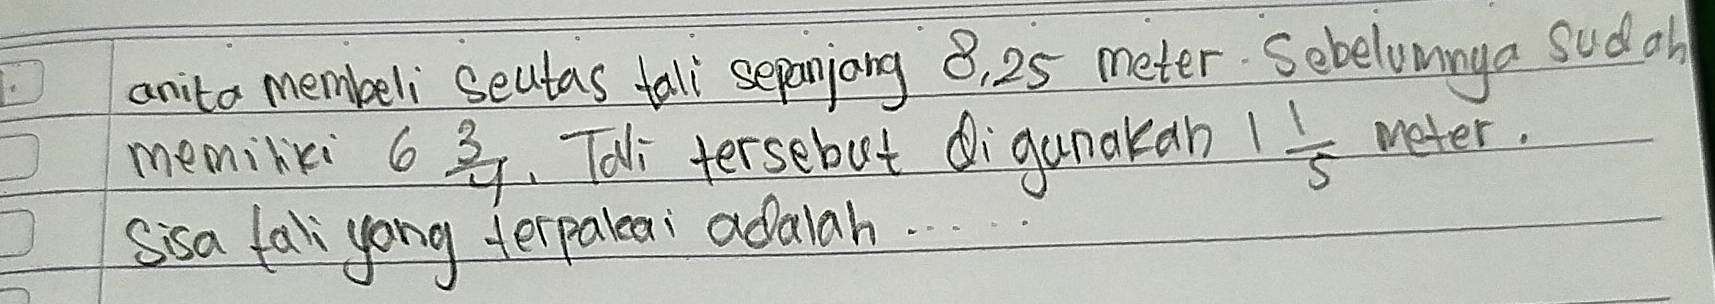 1. anita membeli seutas tali sepanjang 8,25 meter. Sebelumnya sudah
memiliki 6 3/4. Tali tersebut digunakan 1 1/5 meter.
Sisa tali yang terpakai adalah .....